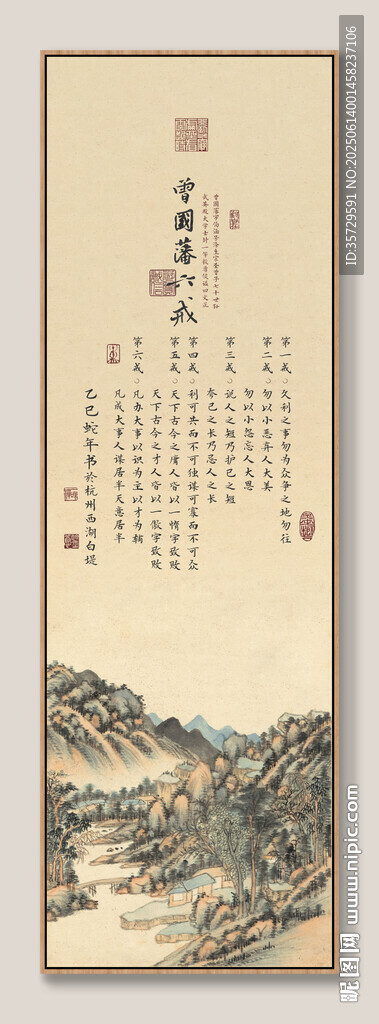 曾國藩六戒
曾國藩字伯涵號滌生宗聖曾子七十世孫
武英殿大學士封一等毅勇侯謚曰文正
第一戒 久利之事勿为众争之地勿往
第二戒 勿以小恶弃人大美
勿以小怨忘人大恩
第三戒 说人之短乃护己之短
夸己之长乃忌人之长
第四戒 利可共而不可独谋可寡而不可众
第五戒 天下古今之庸人皆以一惰字致败
天下古今之才人皆以一傲字致败
第六戒 凡办大事以识为主以才为辅
凡成大事人谋居半天意居半
乙巳蛇年书於杭州西湖白堤
ID:35729591 NO:20250614001458237106
昵图网 www.nipic.com